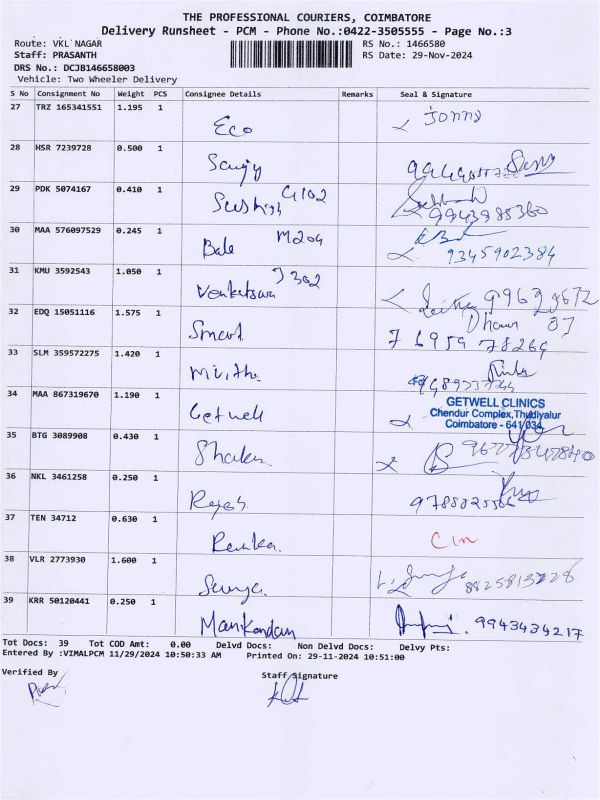 THE PROFESSIONAL COURIERS, COIMBATORE
Delivery Runsheet - PCM - Phone No.:0422-3505555 - Page No.:3
Route: VKL NAGAR RS No.: 1466580
Staff: PRASANTH RS Date: 29-Nov-2024
DRS No.: DCJB146658003
Vehicle: Two Wheeler Delivery
S No Consignment No Weight PCS Consignee Details Remarks Seal & Signature
27 TRZ 165341551 1.195 1 Eco
28 HSR 7239728 0.500 1 Sanjy
29 PDK 5074167 0.410 1 G102 9943985360
30 MAA 576097529 0.245 1 Bala M204 9345902384
31 KMU 3592543 1.050 1 J302
32 EDQ 15051116 1.575 1 Smart
33 SLM 359572275 1.420 1
34 MAA 867319670 1.190 1 Getwell GETWELL CLINICS
Chendur Complex,Thudiyalur
Coimbatore - 641 034.
35 BTG 3089908 0.430 1
36 NKL 3461258 0.250 1 Rajesh
37 TEN 34712 0.630 1 Renuka.
38 VLR 2773930 1.600 1 Surya.
39 KRR 50120441 0.250 1 Manikandan 9943434217
Tot Docs: 39 Tot COD Amt: 0.00 Delvd Docs: Non Delvd Docs: Delvy Pts:
Entered By :VIMALPCM 11/29/2024 10:50:33 AM Printed On: 29-11-2024 10:51:00
Verified By Staff Signature